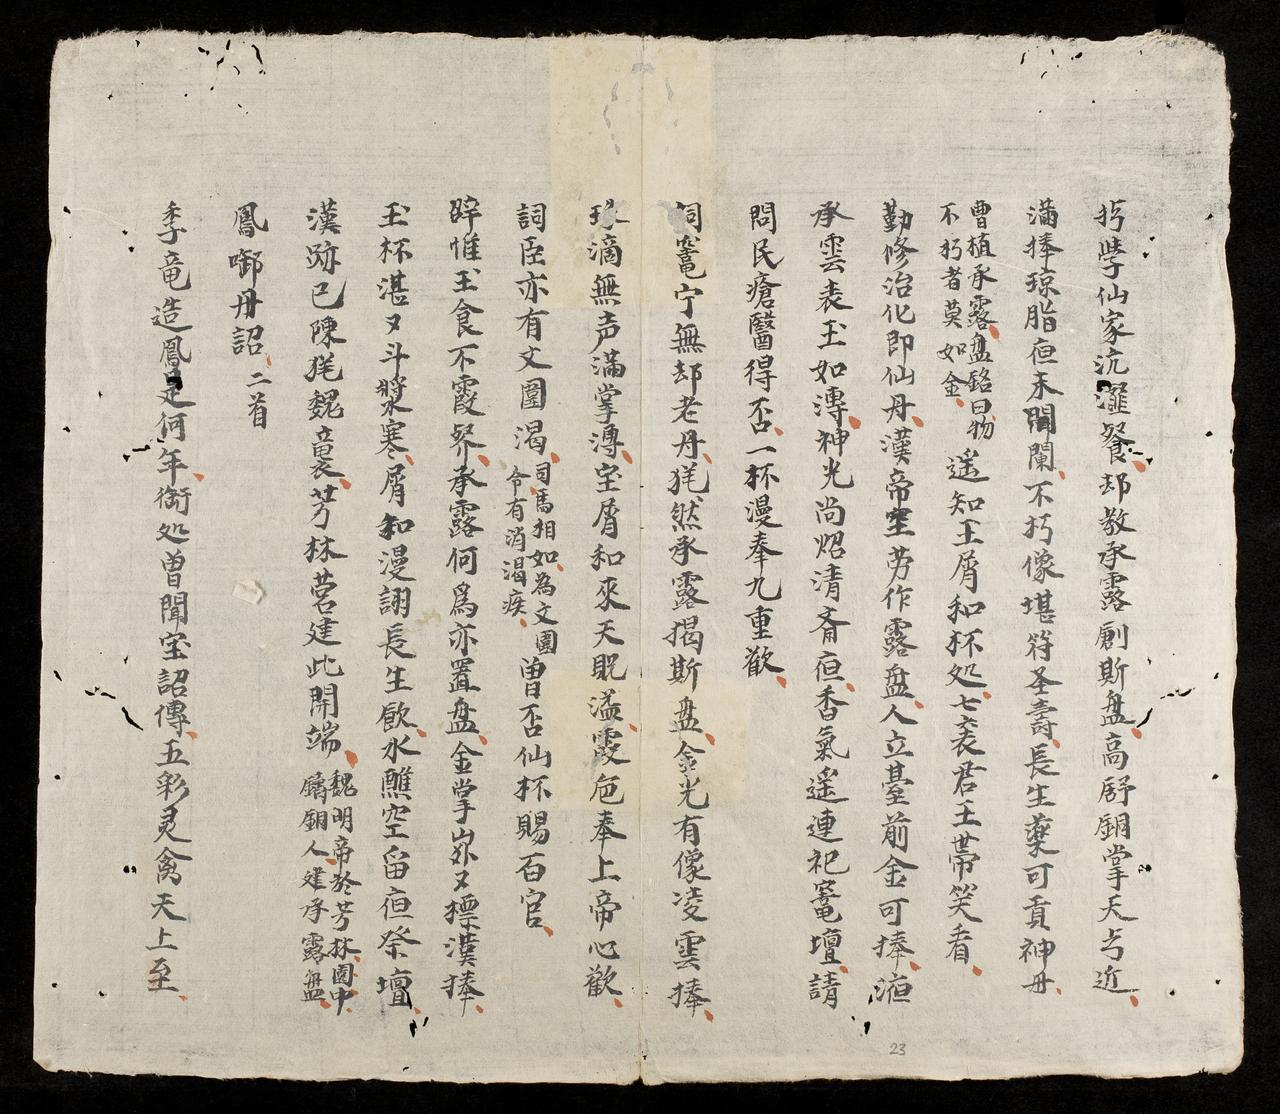 学仙家沆瀣餐却教承露創斯盘高舒銅掌天与近
滿捧琼脂夜未闌不朽像堪符圣壽長生薬可貢神丹
曹植承露盘銘曰物不朽者莫如金遥知玉屑和杯処七袠君王帶笑看
勤修治化即仙丹漢帝空劳作露盘人立臺前金可捧液
承雲表玉如漙神光尚炤清斎夜香氣遥連祀竃壇請
問民瘡醫得否一杯漫奉九重歡
祠竃宁無却老丹犹然承露揭斯盘金光有像凌雲捧
珠滴無声滿掌漙宝屑和來天貺溢霞色奉上帝心歡
詞臣亦有文園渴司馬相如為文園令有消渴疾曽否仙杯賜百官
辟惟玉食不霞飡承露何為亦置盘金掌岁又標漢捧
玉杯湛又斗漿寒屑和漫詡長生飲水醮空留夜祭壇
漢跡已陳犹魏襲芳林营建此開端魏明帝於芳林園中鑄銅人建承露盘
鳳啣丹詔二首
季竜造鳳是何年啣処曽聞宝詔傳五彩灵禽天上至